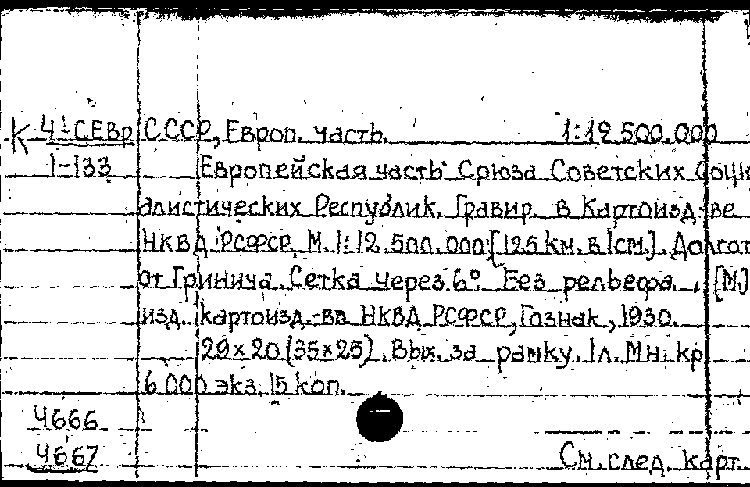 К 4¹-СЕвр СССР, Европ. часть. 1:12.500.000
1-133 Европейская часть Союза Советских Соци
алистических Республик. Гравир. в Картоизд-ве
НКВД РСФСР. М. 1:12.500.000 [125 км. в 1см.]. Долгот
от Гринича. Сетка через 6°. Без рельефа. [М]
изд. картоизд-ва НКВД РСФСР, Гознак, 1930.
29×20 (35×25). Вых. за рамку. 1л. Мн. кр
6 000 экз. 15 коп.
4666
4667 См. след. карт.